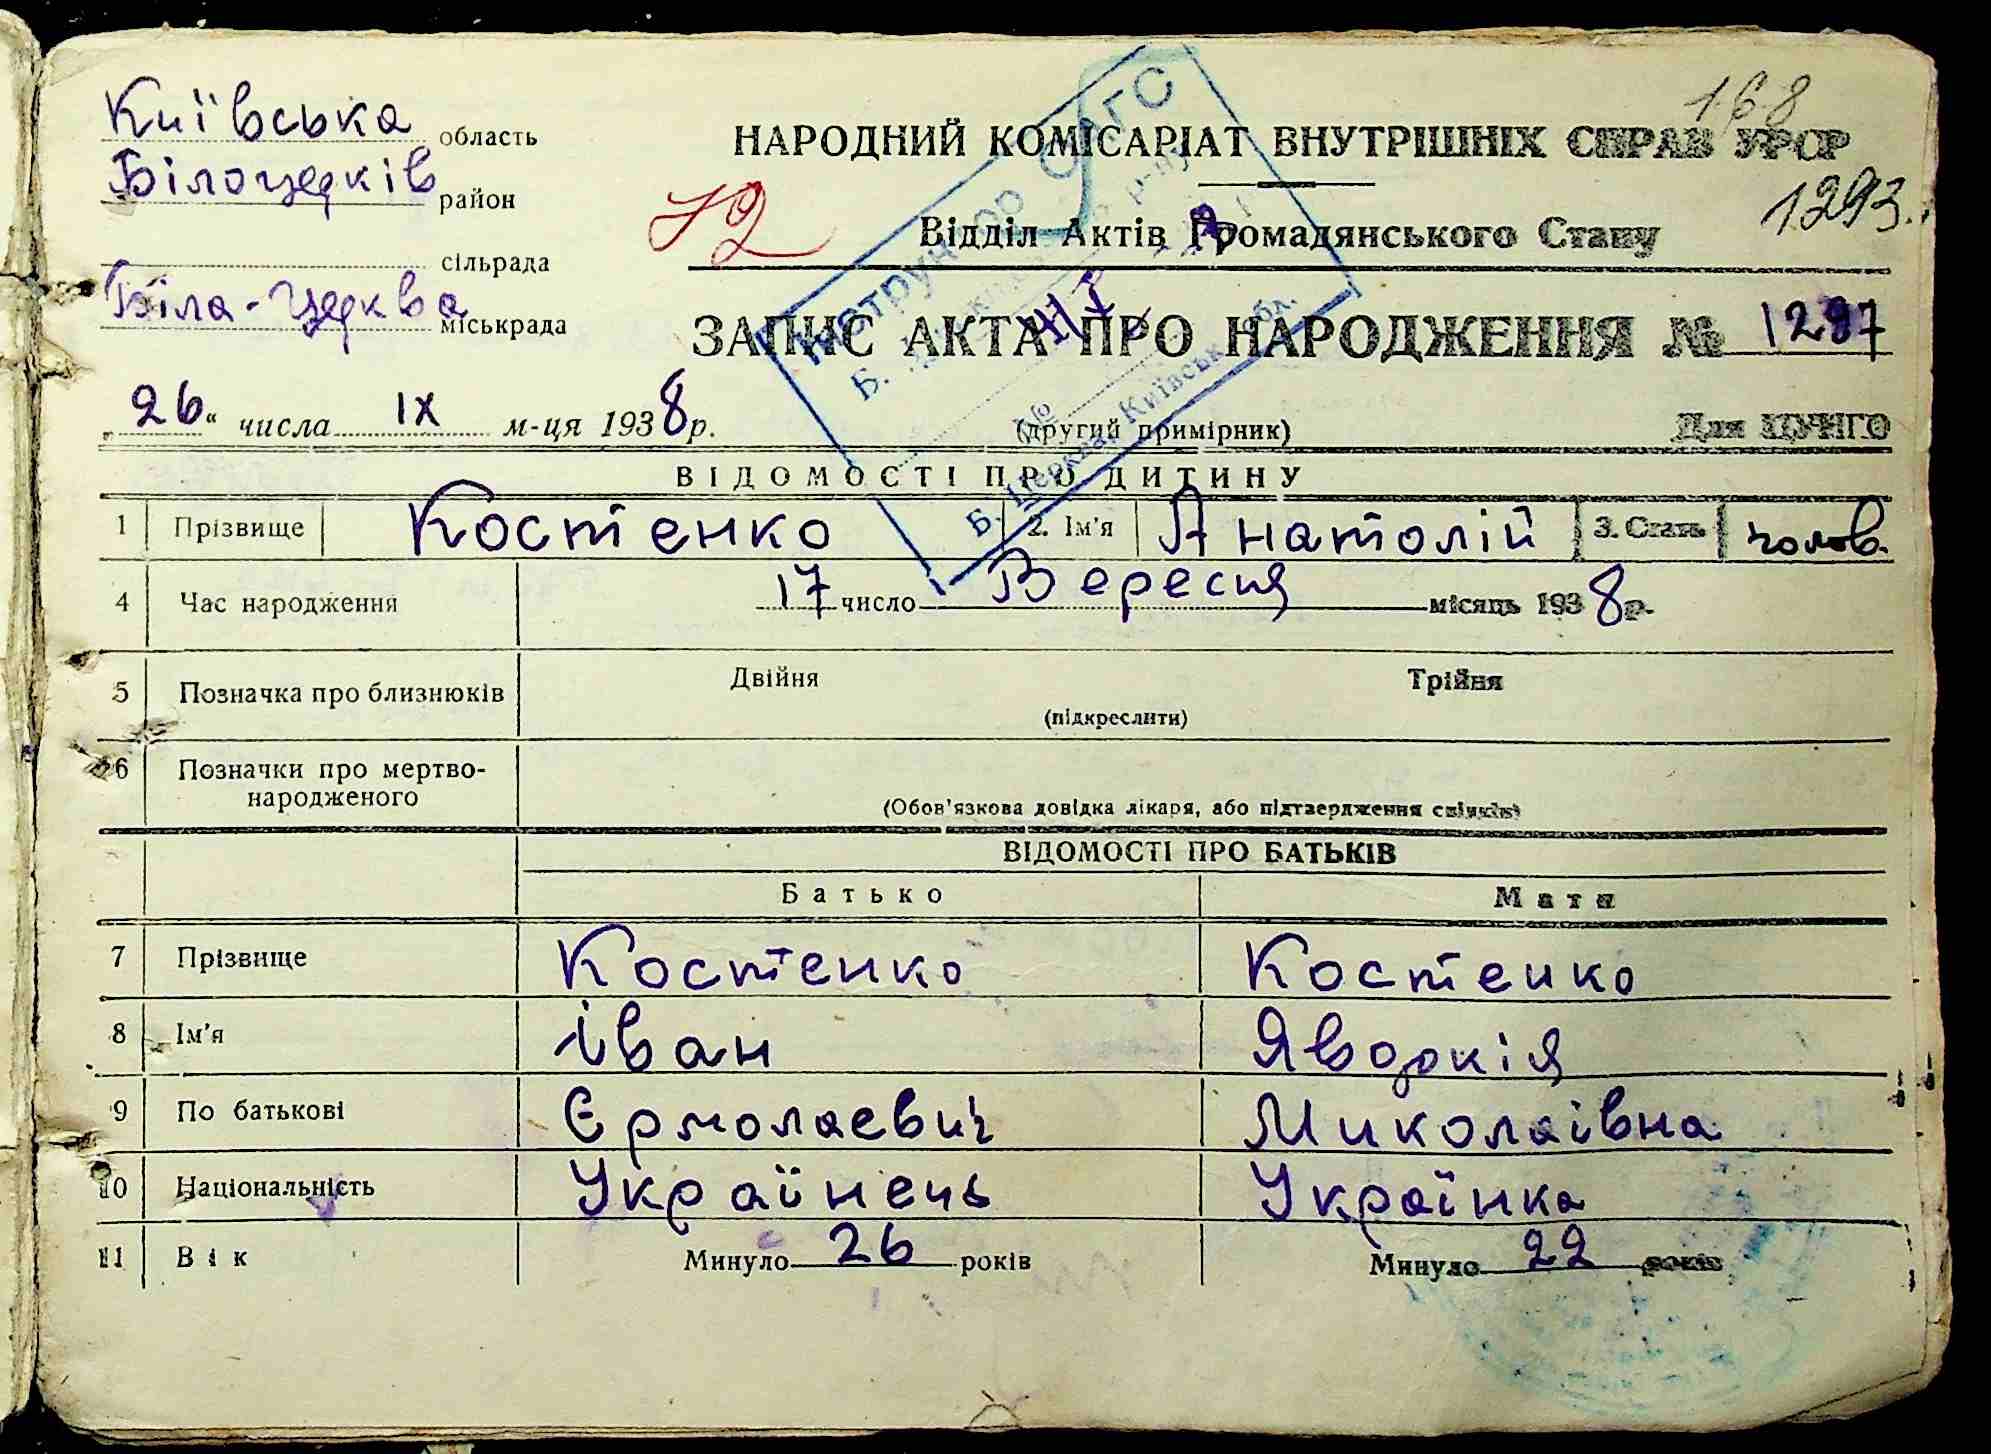 168
Київська область
НАРОДНИЙ КОМІСАРІАТ ВНУТРІШНІХ СПРАВ УРСР
Білоцерків район
12
1293.
Відділ Актів Громадянського Стану
сільрада
Біла-Церква міськрада
ЗАПИС АКТА ПРО НАРОДЖЕННЯ № 1297
„26“ числа IX м-ця 1938р.
(другий примірник)
Для ЦУНГО
ВІДОМОСТІ ПРО ДИТИНУ
1 Прізвище Костенко 2. Ім'я Анатолій 3. Стать чолов.
4 Час народження 17 число Вересня місяць 1938р.
5 Позначка про близнюків Двійня Трійня
(підкреслити)
6 Позначки про мертво-
народженого
(Обов'язкова довідка лікаря, або підтвердження свідків)
ВІДОМОСТІ ПРО БАТЬКІВ
Батько Мати
7 Прізвище Костенко Костенко
8 Ім'я Іван Явдокія
9 По батькові Єрмолаевич Миколаівна
10 Національність Українець Українка
11 Вік Минуло 26 років Минуло 22 років